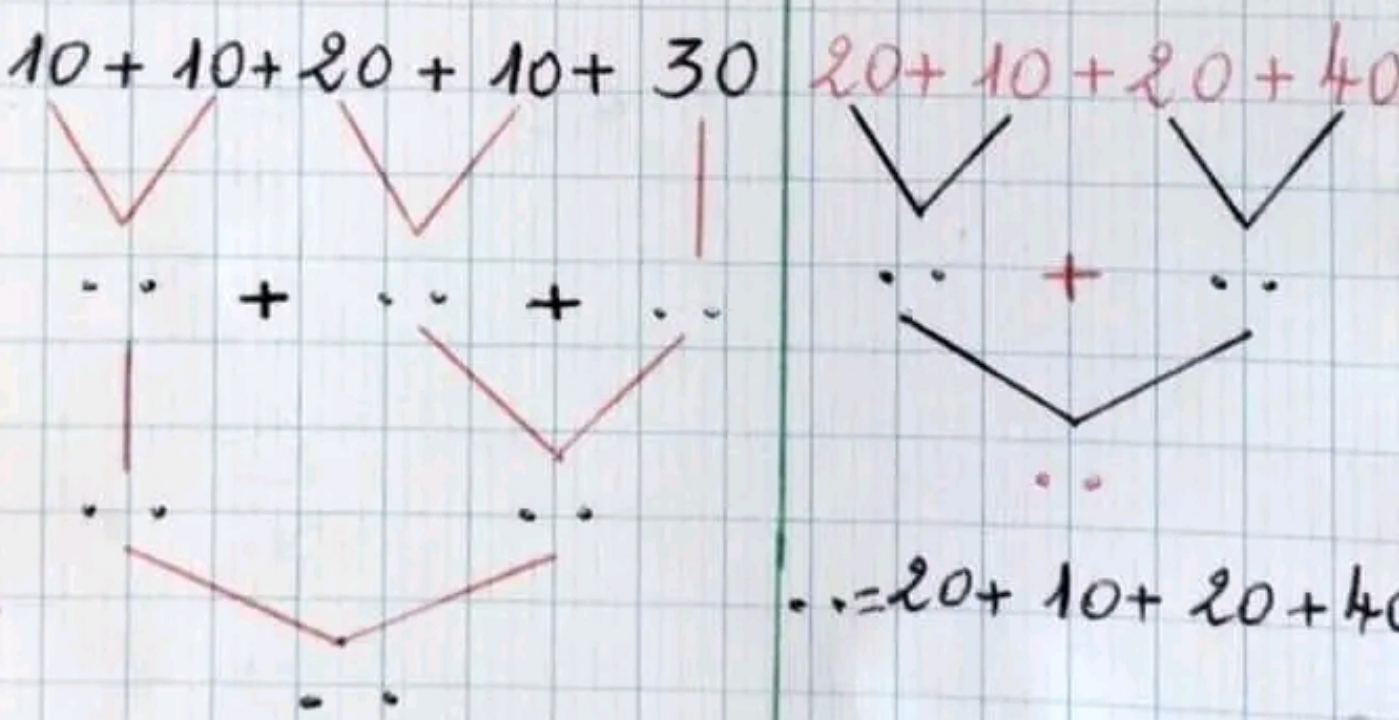 10 + 10 + 20 + 10 + 30
.. + .. + ..
.. ..
..
20 + 10 + 20 + 40
.. + ..
..
.. = 20 + 10 + 20 + 40